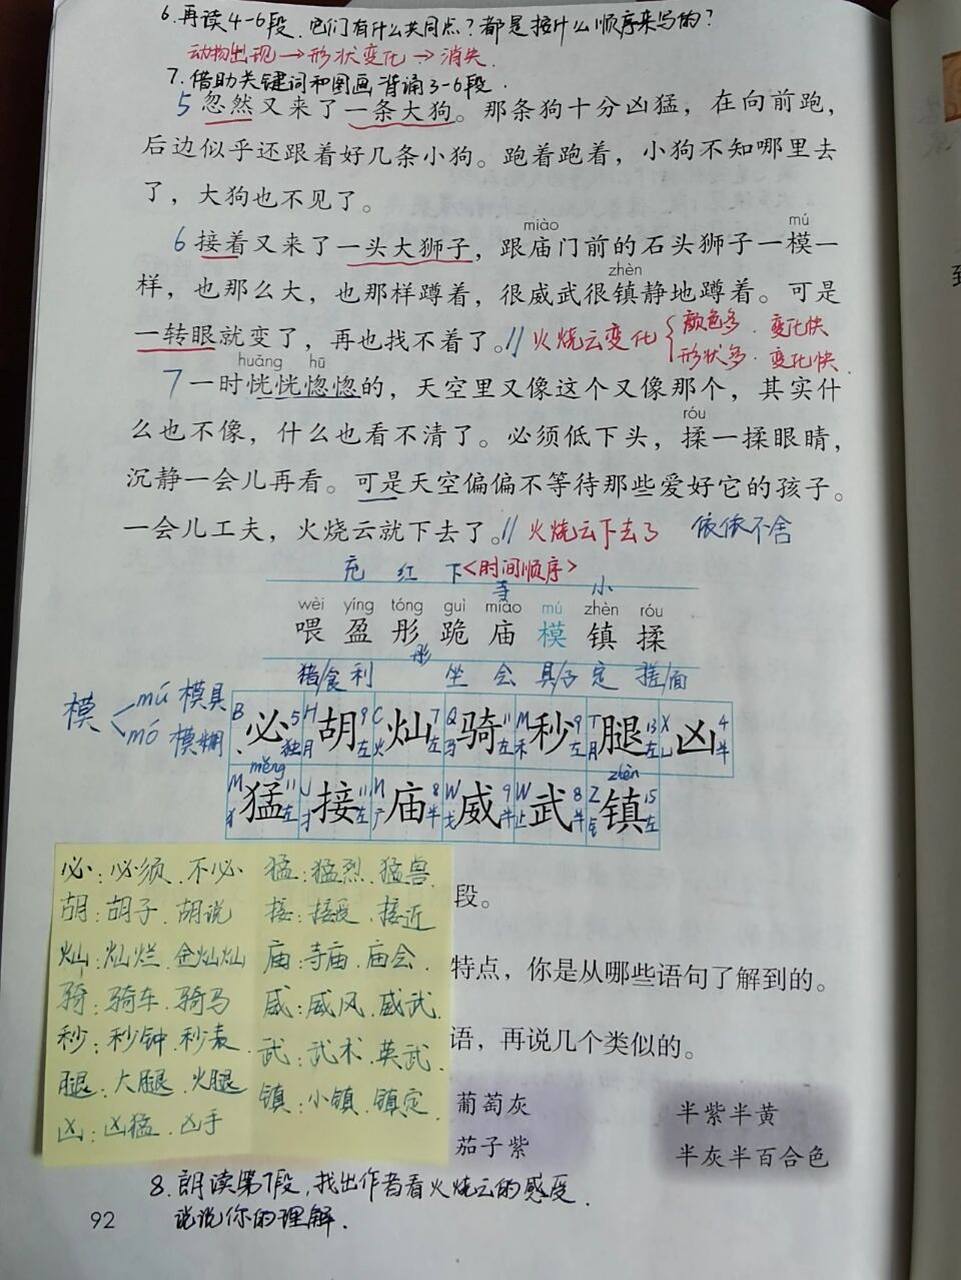 6.再读4-6段.它们有什么共同点?都是按什么顺序来写的?
动物出现→形状变化→消失.
7.借助关键词和图画背诵3-6段.
5 忽然又来了一条大狗。那条狗十分凶猛，在向前跑，
后边似乎还跟着好几条小狗。跑着跑着，小狗不知哪里去
了，大狗也不见了。
miào mú
6 接着又来了一头大狮子，跟庙门前的石头狮子一模一
zhèn
样，也那么大，也那样蹲着，很威武很镇静地蹲着。可是
一转眼就变了，再也找不着了。// 火烧云变化 { 颜色多.变化快
形状多.变化快.
huǎng hū
7 一时恍恍惚惚的，天空里又像这个又像那个，其实什
róu
么也不像，什么也看不清了。必须低下头，揉一揉眼睛，
沉静一会儿再看。可是天空偏偏不等待那些爱好它的孩子。
一会儿工夫，火烧云就下去了。// 火烧云下去了 依依不舍
充 红 下 <时间顺序>
寺 小
wèi yíng tóng guì miào mú zhèn róu
喂 盈 彤 跪 庙 模 镇 揉
彤
猪/食 利 坐 会 具/子 定 搓/面
模 mú 模具
mó 模糊
B 必 5 独 H 胡 9 左 月 C 灿 7 左 火 Q 骑 11 左 马 M 秒 9 左 禾 T 腿 13 左 月 X 凶 4 半 凵
měng zhèn
M 猛 11 左 犭 J 接 11 左 扌 M 庙 8 半 广 W 威 9 半 戈 W 武 8 半 止 Z 镇 15 左 钅
必:必须.不必
胡:胡子.胡说
灿:灿烂.金灿灿
骑:骑车.骑马
秒:秒钟.秒表
腿:大腿.火腿
凶:凶猛.凶手
猛:猛烈.猛兽
接:接受.接近
庙:寺庙.庙会.
威:威风.威武.
武:武术.英武.
镇:小镇.镇定.
段。
特点，你是从哪些语句了解到的。
语，再说几个类似的。
葡萄灰 半紫半黄
茄子紫 半灰半百合色
8.朗读第7段,找出作者看火烧云的感受.
说说你的理解.
92